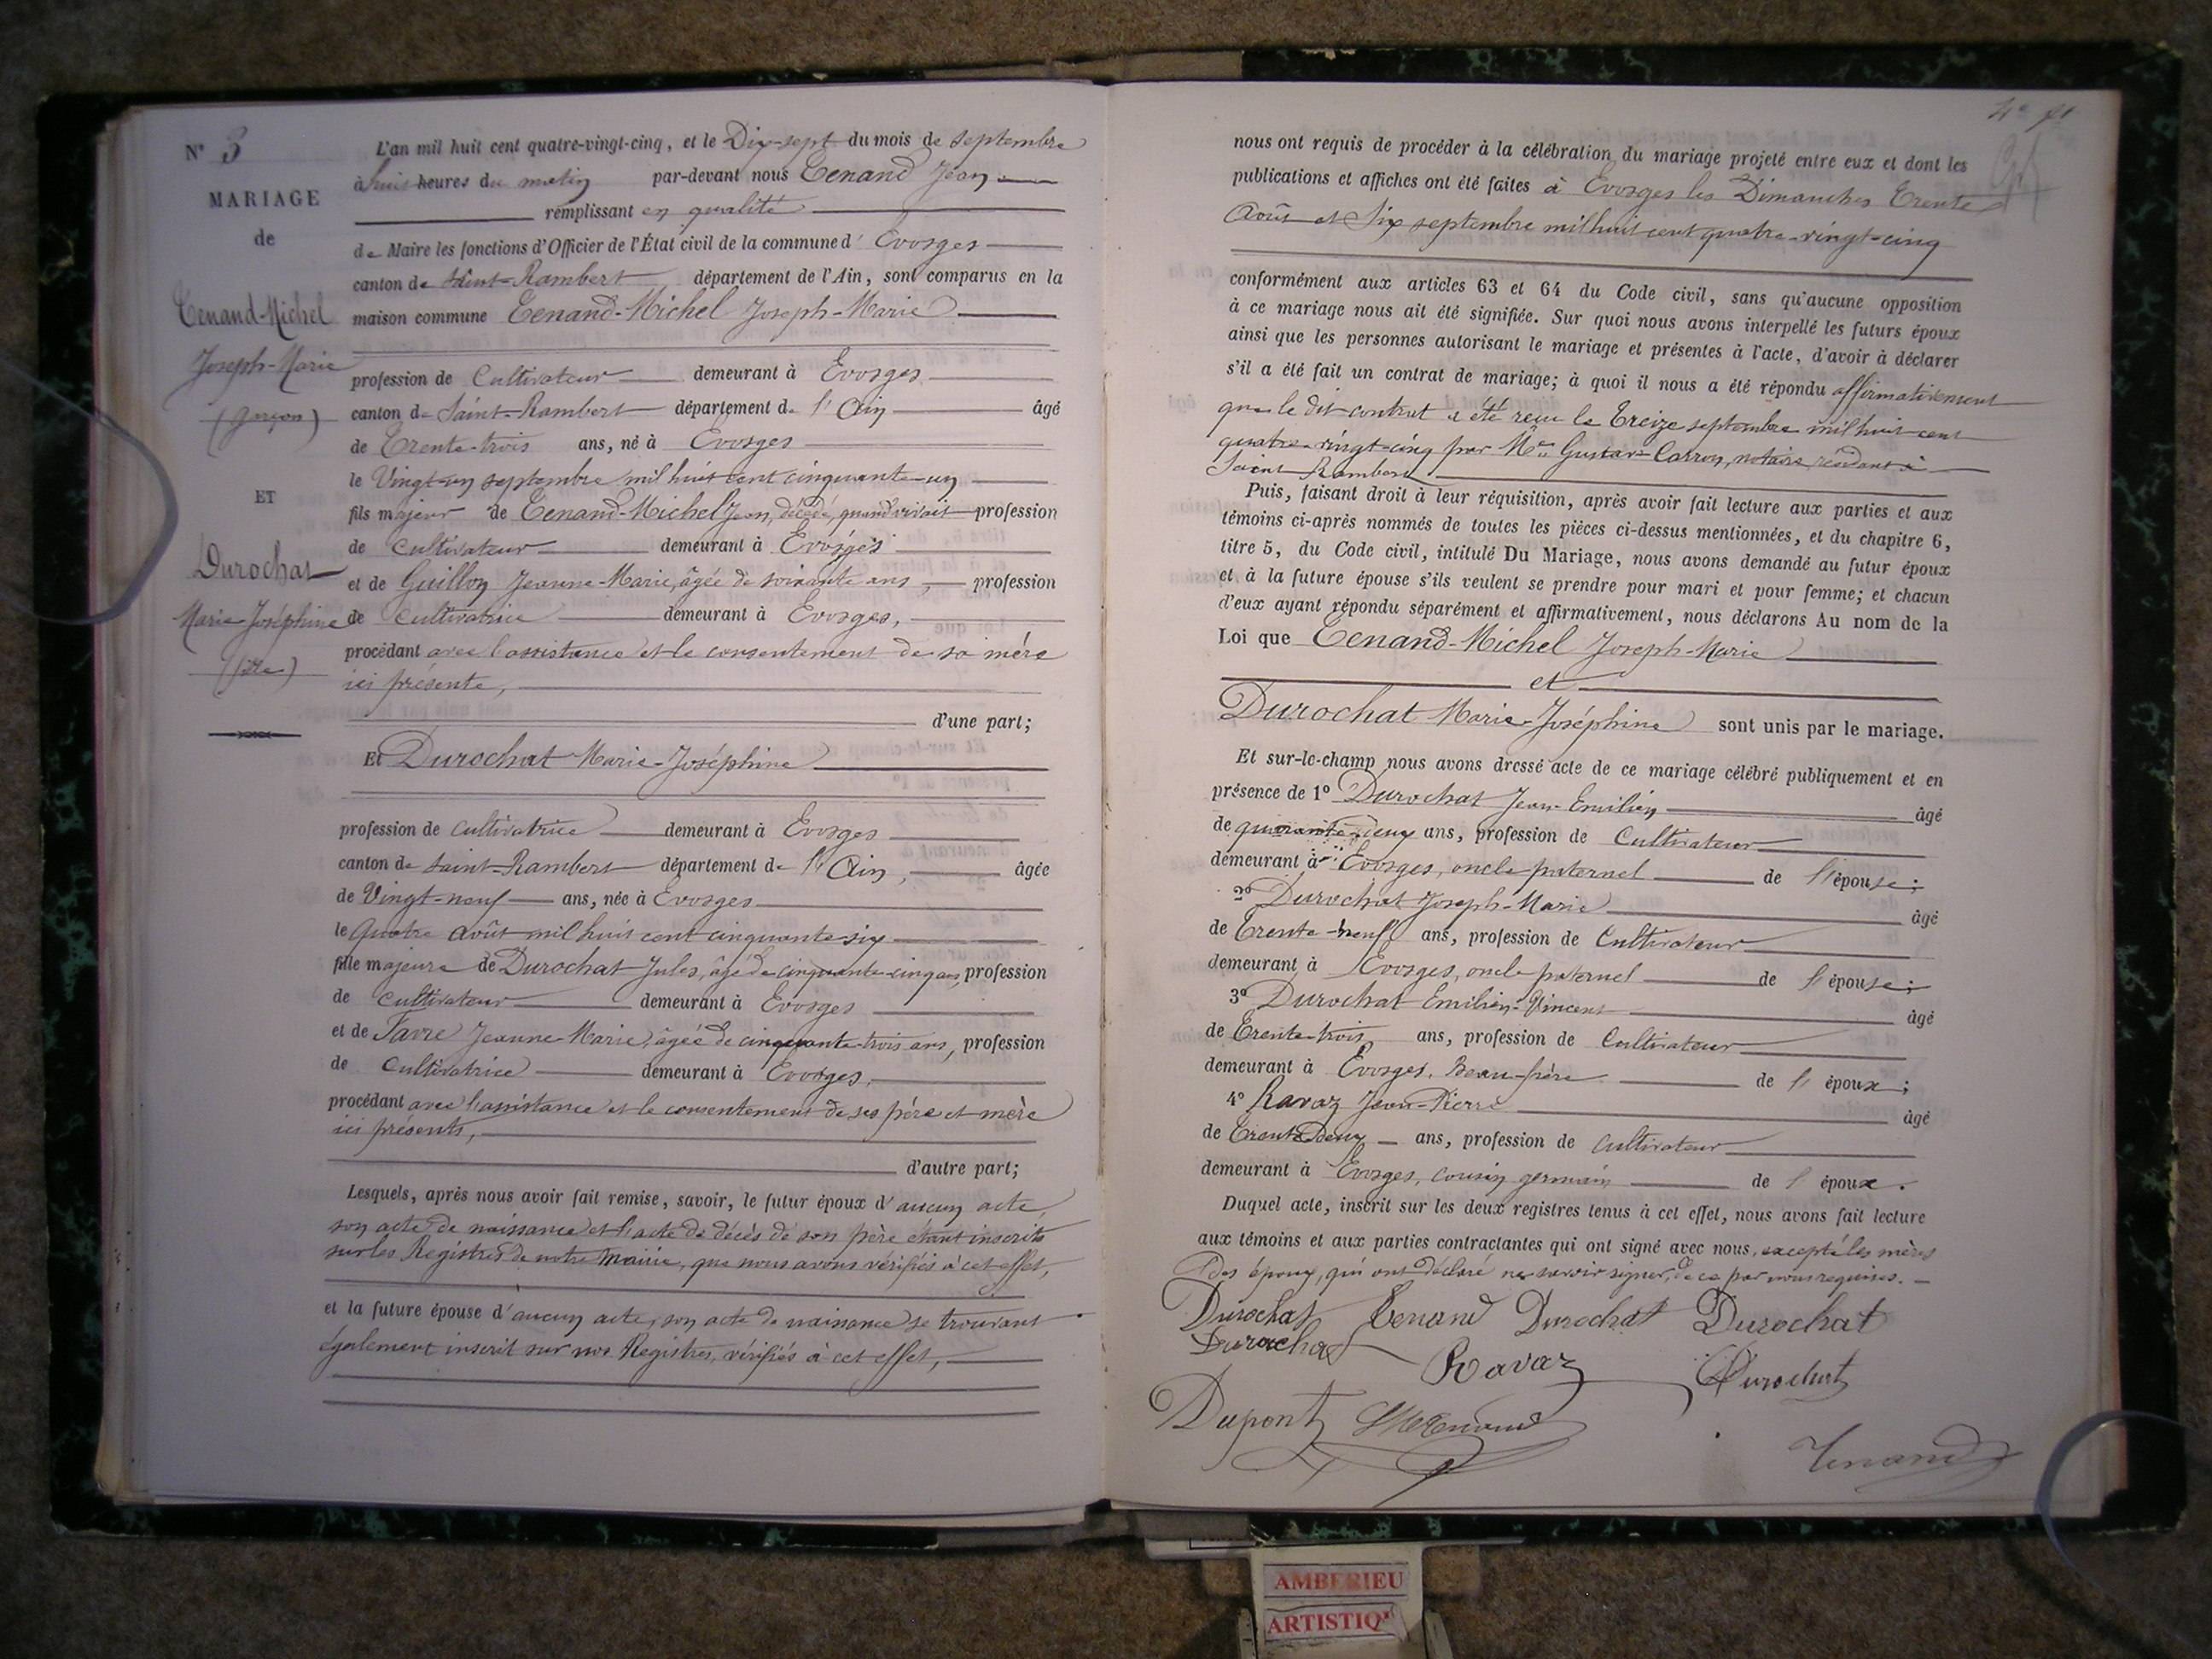 N° 3
MARIAGE
de
Tenand-Michel
Joseph-Marie
(garçon)
ET
Durochat
Marie-Joséphine
(fille)
L'an mil huit cent quatre-vingt-cinq, et le Dix-sept du mois de septembre
à huit heures du matin par-devant nous Tenand Jean
remplissant en qualité
de Maire les fonctions d'Officier de l'État civil de la commune d'Evosges
canton de Saint-Rambert département de l'Ain, sont comparus en la
maison commune Tenand-Michel Joseph-Marie
profession de Cultivateur demeurant à Evosges
canton de Saint-Rambert département de l'Ain âgé
de Trente-trois ans, né à Evosges
le Vingt-un septembre mil huit cent cinquante-un
fils majeur de Tenand-Michel Jean, décédé, quand vivait profession
de Cultivateur demeurant à Evosges
et de Guillon Jeanne-Marie, âgée de soixante ans, profession
de Cultivatrice demeurant à Evosges,
procédant avec l'assistance et le consentement de sa mère
ici présente,
d'une part;
Et Durochat Marie-Joséphine
profession de cultivatrice demeurant à Evosges
canton de Saint-Rambert département de l'Ain, âgée
de Vingt-neuf ans, née à Evosges
le Quatre août mil huit cent cinquante-six
fille majeure de Durochat Jules, âgé de cinquante-cinq ans, profession
de Cultivateur demeurant à Evosges
et de Favre Jeanne-Marie, âgée de cinquante-trois ans, profession
de Cultivatrice demeurant à Evosges,
procédant avec l'assistance et le consentement de ses père et mère
ici présents,
d'autre part;
Lesquels, après nous avoir fait remise, savoir, le futur époux d'aucun acte,
son acte de naissance et l'acte de décès de son père étant inscrits
sur les Registres de notre Mairie, que nous avons vérifiés à cet effet,
et la future épouse d'aucun acte, son acte de naissance se trouvant
également inscrit sur nos Registres, vérifiés à cet effet,
nous ont requis de procéder à la célébration du mariage projeté entre eux et dont les
publications et affiches ont été faites à Evosges les Dimanches Trente
Août et Six septembre mil huit cent quatre-vingt-cinq
conformément aux articles 63 et 64 du Code civil, sans qu'aucune opposition
à ce mariage nous ait été signifiée. Sur quoi nous avons interpellé les futurs époux
ainsi que les personnes autorisant le mariage et présentes à l'acte, d'avoir à déclarer
s'il a été fait un contrat de mariage; à quoi il nous a été répondu affirmativement
que le dit contrat a été reçu le Treize septembre mil huit cent
quatre-vingt-cinq par Me Gustave Carron, notaire résidant à
Saint Rambert
Puis, faisant droit à leur réquisition, après avoir fait lecture aux parties et aux
témoins ci-après nommés de toutes les pièces ci-dessus mentionnées, et du chapitre 6,
titre 5, du Code civil, intitulé Du Mariage, nous avons demandé au futur époux
et à la future épouse s'ils veulent se prendre pour mari et pour femme; et chacun
d'eux ayant répondu séparément et affirmativement, nous déclarons Au nom de la
Loi que Tenand-Michel Joseph-Marie
et
Durochat Marie-Joséphine sont unis par le mariage.
Et sur-le-champ nous avons dressé acte de ce mariage célébré publiquement et en
présence de 1° Durochat Jean-Emilien âgé
de quarante-deux ans, profession de Cultivateur
demeurant à Evosges, oncle paternel de l'épouse;
2° Durochat Joseph-Marie âgé
de Trente-neuf ans, profession de Cultivateur
demeurant à Evosges, oncle paternel de l'épouse;
3° Durochat Emilien-Vincent âgé
de Trente-trois ans, profession de Cultivateur
demeurant à Evosges, Beau-frère de l'époux;
4° Ravaz Jean-Pierre âgé
de Trente Deux ans, profession de Cultivateur
demeurant à Evosges, cousin germain de l'époux.
Duquel acte, inscrit sur les deux registres tenus à cet effet, nous avons fait lecture
aux témoins et aux parties contractantes qui ont signé avec nous, excepté les mères
des époux, qui ont déclaré ne savoir signer, de ce par nous requises.
Durochat Tenand Durochat Durochat
Durochat Ravaz Durochat
Dupont
Tenand
AMBERIEU
ARTISTIQ'